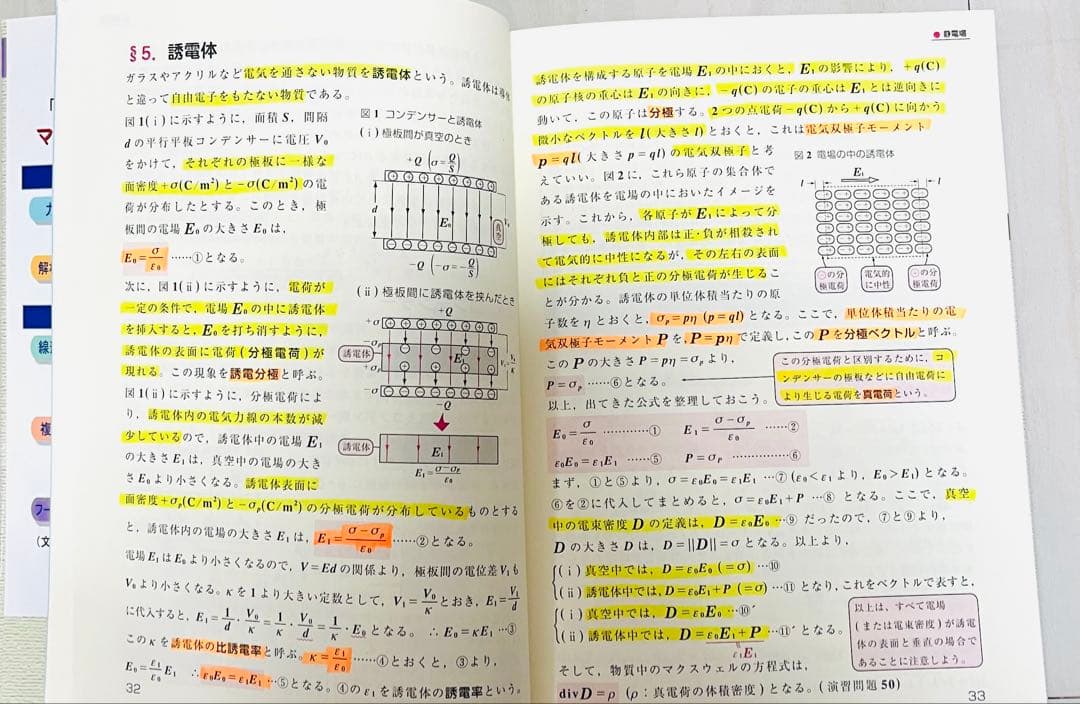 §5. 誘電体
ガラスやアクリルなど電気を通さない物質を誘電体という。誘電体は導体
と違って自由電子をもたない物質である。
図1(ⅰ)に示すように，面積 S，間隔
d の平行平板コンデンサーに電圧 V₀
をかけて，それぞれの極板に一様な
面密度+σ(C/m²)と−σ(C/m²)の電
荷が分布したとする。このとき，極
板間の電場 E₀ の大きさ E₀ は，
E₀ = σ/ε₀ ……①となる。
次に，図1(ⅱ)に示すように，電荷が
一定の条件で，電場 E₀ の中に誘電体
を挿入すると，E₀ を打ち消すように，
誘電体の表面に電荷(分極電荷)が
現れる。この現象を誘電分極と呼ぶ。
図1(ⅱ)に示すように，分極電荷によ
り，誘電体内の電気力線の本数が減
少しているので，誘電体中の電場 E₁
の大きさ E₁ は，真空中の電場の大き
さ E₀ より小さくなる。誘電体表面に
面密度+σₚ(C/m²)と−σₚ(C/m²)の分極電荷が分布しているものとする
と，誘電体内の電場の大きさ E₁ は，E₁ = (σ−σₚ)/ε₀ ……②となる。
電場 E₁ は E₀ より小さくなるので，V=Ed の関係より，極板間の電位差 V₁ も
V₀ より小さくなる。κ を1より大きい定数として，V₁ = V₀/κ とおき，E₁ = V₁/d
に代入すると，E₁ = 1/d · V₀/κ = 1/κ · V₀/d = 1/κ · E₀ となる。 ∴ E₀ = κE₁ …③
この κ を誘電体の比誘電率と呼ぶ。κ = ε₁/ε₀ ……④とおくと，③より，
E₀ = ε₁/ε₀ E₁ ∴ ε₀E₀ = ε₁E₁ …⑤となる。④の ε₁ を誘電体の誘電率という。
32
図1 コンデンサーと誘電体
(ⅰ)極板間が真空のとき
+Q (σ = Q/S)
d
E₀
真空
−Q (−σ = −Q/S)
(ⅱ)極板間に誘電体を挟んだとき
+Q
+σ
−σₚ
誘電体
E₁
+σₚ
−σ
−Q
誘電体
E₁
E₁ = (σ−σₚ)/ε₀
●静電場
誘電体を構成する原子を電場 E₁ の中におくと，E₁ の影響により，+q(C)
の原子核の重心は E₁ の向きに，−q(C)の電子の重心は E₁ とは逆向きに
動いて，この原子は分極する。2つの点電荷 −q(C) から +q(C) に向かう
微小なベクトルを l (大きさ l) とおくと，これは電気双極子モーメント
p = ql (大きさ p = ql) の電気双極子と考
えていい。図2に，これら原子の集合体で
ある誘電体を電場の中においたイメージを
示す。これから，各原子が E₁ によって分
極しても，誘電体内部は正・負が相殺され
て電気的に中性になるが，その左右の表面
にはそれぞれ負と正の分極電荷が生じるこ
とが分かる。誘電体の単位体積当たりの原
図2 電場の中の誘電体
l
E₁
l
⊖の分極電荷
電気的に中性
の分極電荷
子数を η とおくと，σₚ = pη (p = ql) となる。ここで，単位体積当たりの電
気双極子モーメント P を，P = pη で定義し，この P を分極ベクトルと呼ぶ。
この P の大きさ P = pη = σₚ より，
P = σₚ ……⑥となる。
この分極電荷と区別するために，コ
ンデンサーの極板などに自由電荷に
より生じる電荷を真電荷という。
以上，出てきた公式を整理しておこう。
E₀ = σ/ε₀ …………① E₁ = (σ−σₚ)/ε₀ ……②
ε₀E₀ = ε₁E₁ ……⑤ P = σₚ …………⑥
まず，①と⑤より，σ = ε₀E₀ = ε₁E₁ …⑦ (ε₀ < ε₁ より，E₀ > E₁) となる。
⑥を②に代入してまとめると，σ = ε₀E₁ + P …⑧ となる。ここで，真空
中の電束密度 D の定義は，D = ε₀E₀ …⑨ だったので，⑦と⑨より，
D の大きさ D は，D = ||D|| = σ となる。以上より，
(ⅰ)真空中では，D = ε₀E₀ (=σ) …⑩
(ⅱ)誘電体中では，D = ε₀E₁ + P (=σ) …⑪ となり，これをベクトルで表すと，
(ⅰ)真空中では，D = ε₀E₀ …⑩′
(ⅱ)誘電体中では，D = ε₀E₁ + P …⑪′ となる。
ε₁E₁
以上は，すべて電場
(または電束密度)が誘電
体の表面と垂直の場合で
あることに注意しよう。
そして，物質中のマクスウェルの方程式は，
divD = ρ (ρ：真電荷の体積密度) となる。(演習問題50)
33